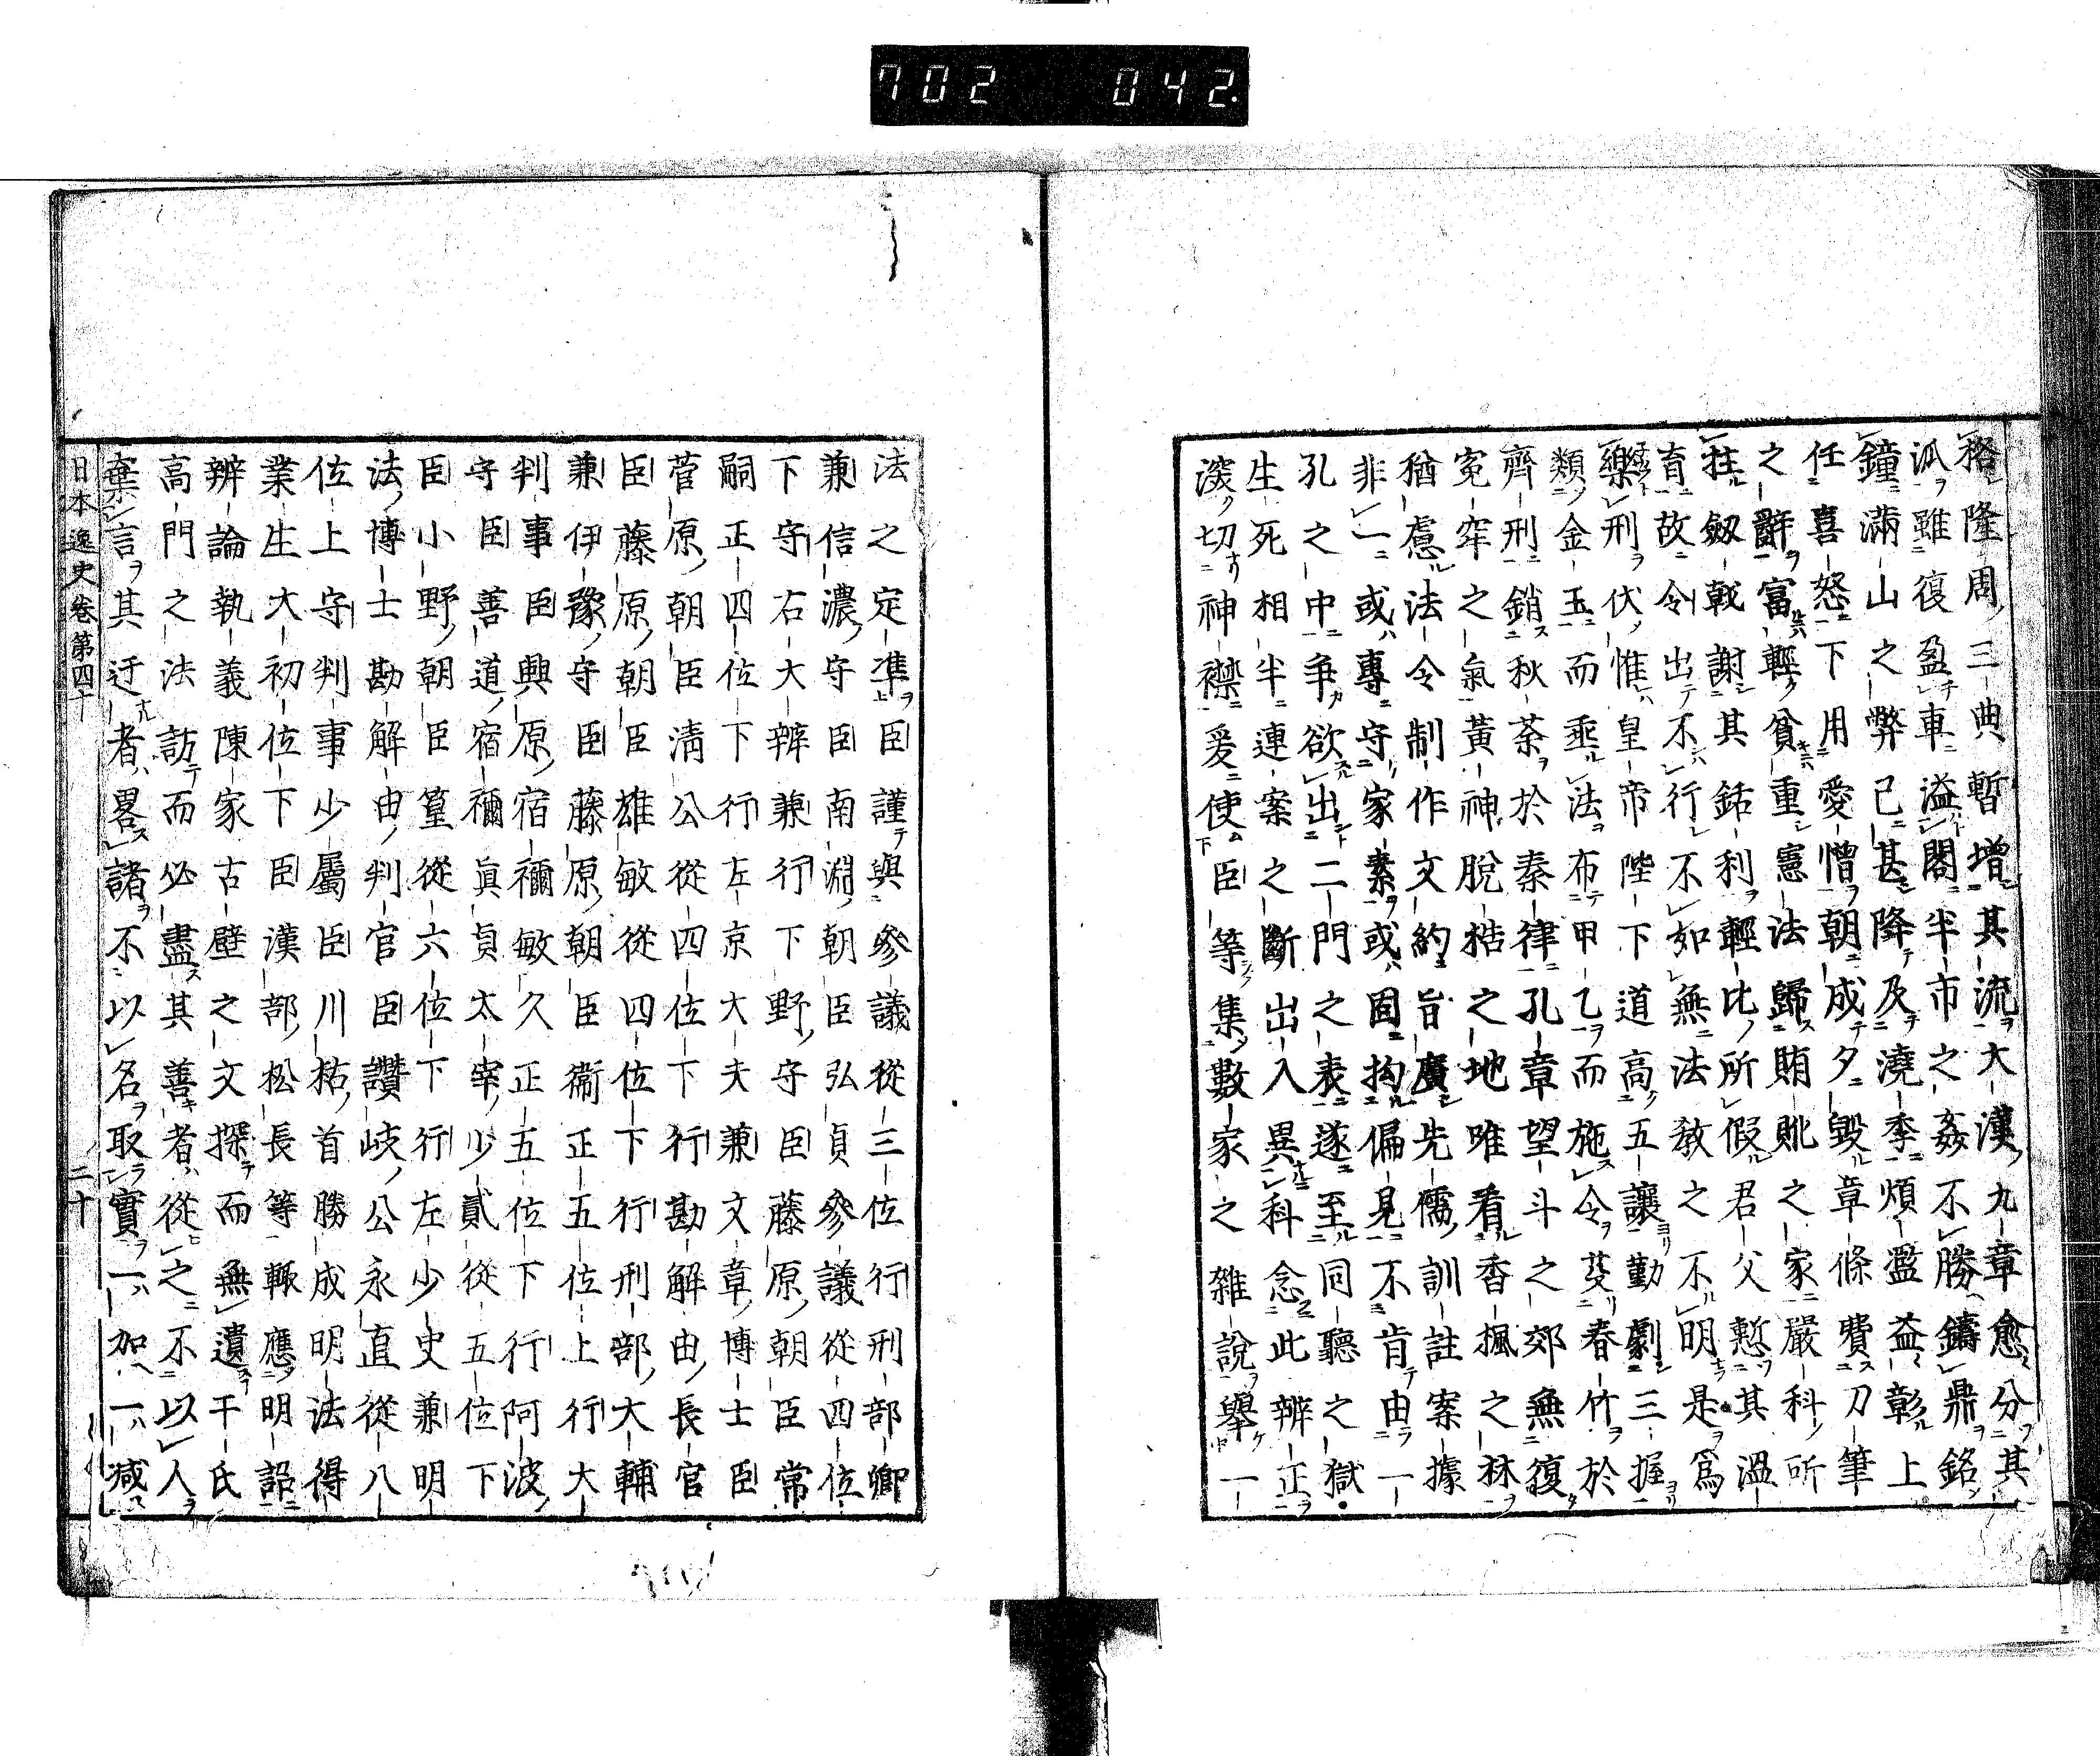 702 042.
格隆周三典暫增其流大漢九章愈分其
派雖復盈車溢閣半市之姦不勝鑄鼎銘
鐘滿山之弊已甚降及澆季煩濫益彰上
任喜怒下用愛憎朝成夕毀章條費刀筆
之辭富輕貧重憲法歸賄貨之家嚴科所
枉劔戟謝其銛利輕比所假君父慙其溫
育故令出不行不如無法教之不明是爲
樂刑伏惟皇帝陛下道高五讓勤劇三握
類金玉而垂法布甲乙而施令芟春竹於
齊刑銷秋荼於秦律孔章望斗之郊無復
冤牢之氣黃神脫梏之地唯看香楓之林
猶慮法令制作文約旨廣先儒訓註案據
非一或專守家素或固拘偏見不肯由一
孔之中爭欲出二門之表遂至同聽之獄
生死相半連案之斷出入異科念此辨正
深切神襟爰使臣等集數家之雜說舉一
法之定準臣謹與參議從三位行刑部卿
兼信濃守臣南淵朝臣弘貞參議從四位
下守右大辨兼行下野守臣藤原朝臣常
嗣正四位下行左京大夫兼文章博士臣
菅原朝臣淸公從四位下行勘解由長官
臣藤原朝臣雄敏從四位下行刑部大輔
兼伊豫守臣藤原朝臣衞正五位上行大
判事臣興原宿禰敏久正五位下行阿波
守臣善道宿禰眞貞太宰少貳從五位下
臣小野朝臣篁從六位下行左少史兼明
法博士勘解由判官臣讚岐公永直從八
位上守判事少屬臣川枯首勝成明法得
業生大初位下臣漢部松長等輙應明詔
辨論執義陳家古壁之文探而無遺于氏
高門之法訪而必盡其善者從之不以人
棄言其迂者畧諸不以名取實一加一減
日本逸史卷第四十 二十